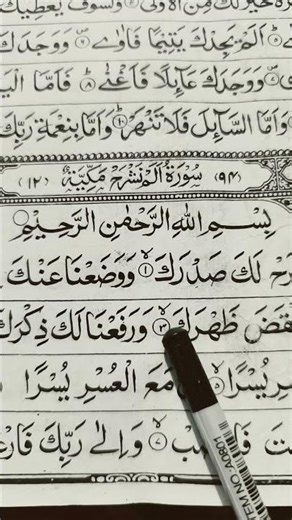 خِرَةُ خَيْرٌ لَّكَ مِنَ الْاُوْلٰى ۞ وَلَسَوْفَ يُعْطِيْكَ
۵ اَلَمْ يَجِدْكَ يَتِيْمًا فَاٰوٰى ۶ وَوَجَدَكَ
وَوَجَدَكَ عَآئِلًا فَاَغْنٰى ۸ فَاَمَّا الْيَ
وَاَمَّا السَّآئِلَ فَلَا تَنْهَرْ ۱۰ وَاَمَّا بِنِعْمَةِ رَبِّكَ
(۹۴) سُوْرَةُ اَلَمْ نَشْرَحْ مَكِّيَّةٌ (۱۲)
بِسْمِ اللّٰهِ الرَّحْمٰنِ الرَّحِيْمِ
رَحْ لَكَ صَدْرَكَ ۱ وَوَضَعْنَا عَنْكَ
نْقَضَ ظَهْرَكَ ۳ وَرَفَعْنَا لَكَ ذِكْرَكَ
رِ يُسْرًا ۵ مَعَ الْعُسْرِ يُسْرًا
تَ فَا بْ ۷ وَاِلٰى رَبِّكَ فَارْغَ
ITEM NO:A0801